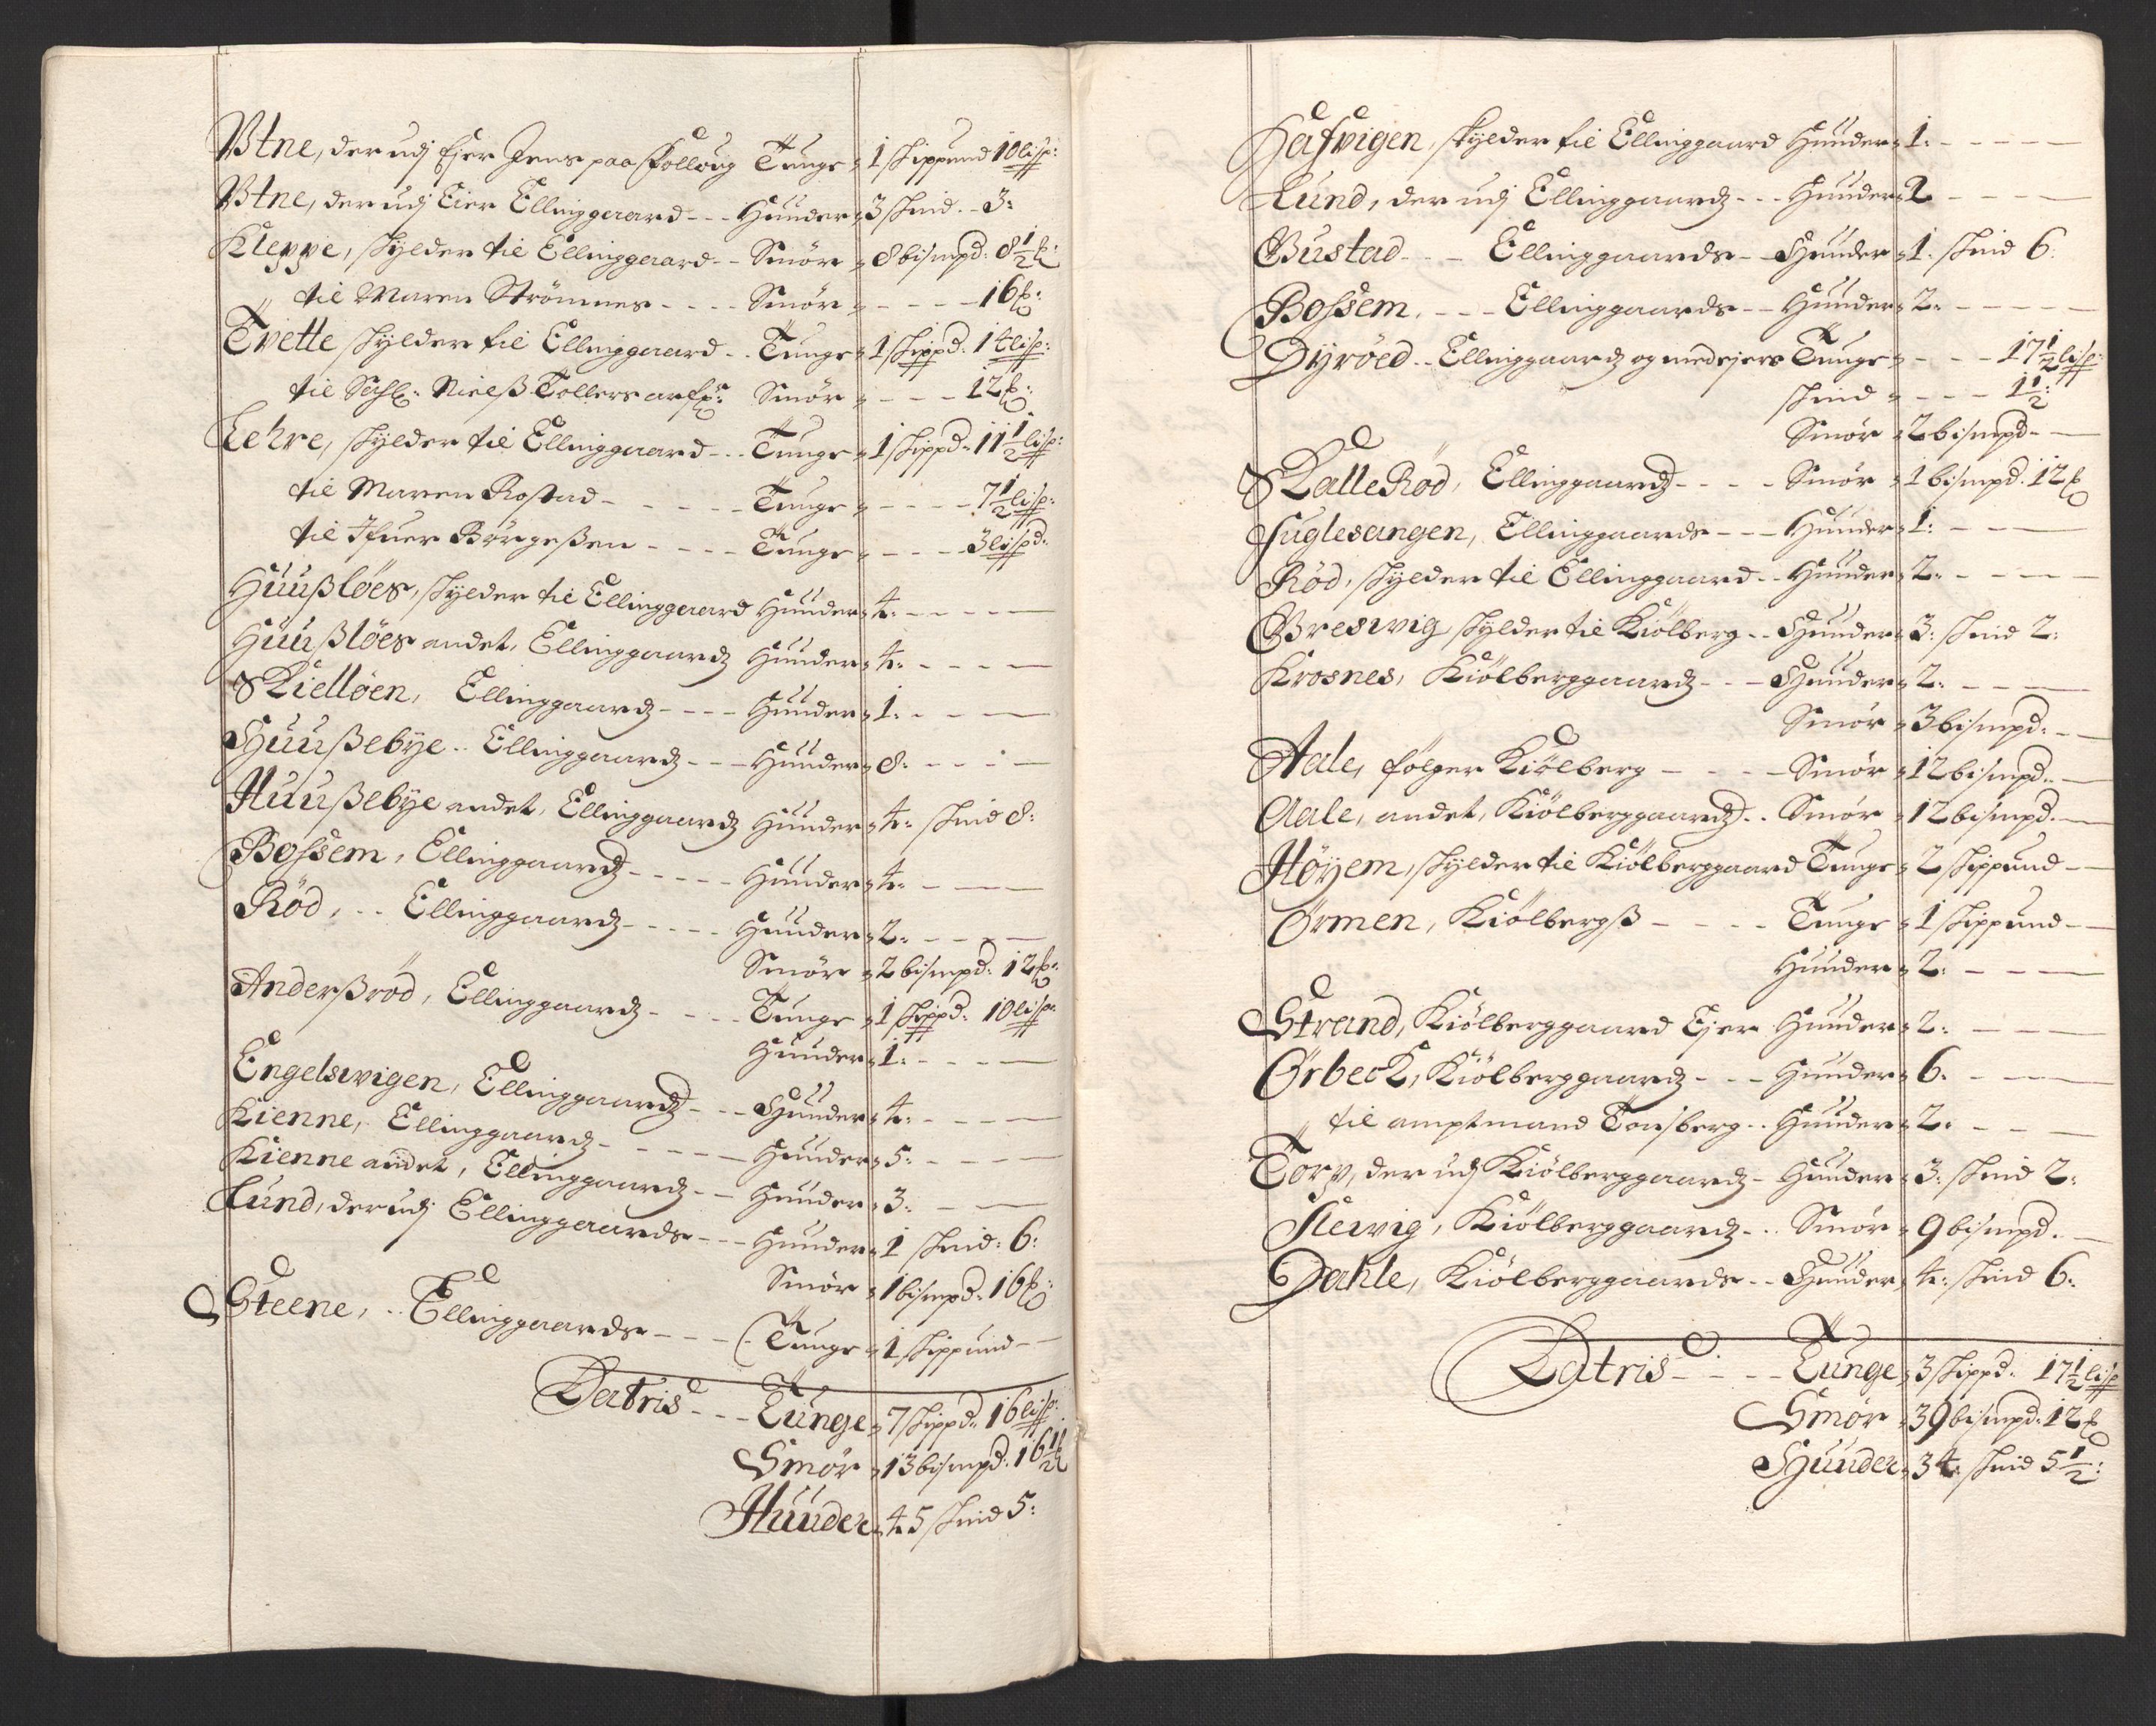 Vtne, der udj Ejer Jens paa Folloug Tunge " 1 skippund 10 lisp:
Vtne, der udj Eier Ellinggaard - - - Huuder " 3 skind - 3:
Kleppe, skylder til Ellinggaard - - Smör " 8 bismpd: 8 1/2 ℔:
til Maren Strömnes - - - - Smör " - - - - 16 ℔:
Tvette skylder til Ellinggaard - - Tunge " 1 skippd: 14 lisp:
til Sahl: Nielß Tollers arfv: Smör " - - - 12 ℔:
Lehre, skylder til Ellinggaard - - Tunge " 1 skippd: 11 1/2 lisp:
til Maren Rostad - - - - - Tunge " - - - - 7 1/2 lisp:
til Ifuer Börgeßen - - - - Tunge " - - - - 3 lispd:
Huußlöes, skylder til Ellinggaard Huuder " 4: - - - -
Huußlöes andet, Ellinggaardz Huuder " 4: - - - -
Skielløen, Ellinggaardz - - - - Huuder " 1: - - -
Huußebye - - Ellinggaardz - - - Huuder " 8: - - - -
Huußebye andet, Ellinggaardz Huuder " 4: skind 8:
Bossem, Ellinggaardz - - - - - Huuder " 4: - - -
Röd, - - Ellinggaardz - - - - - Huuder " 2: - - - -
Smör " 2 bismpd: 12 ℔:
Anderßröd, Ellinggaardz - - - - Tunge " 1 skippd: 10 lisp:
Huuder " 1: - - - -
Engelswigen, Ellinggaardz - - - Huuder " 4: - - - -
Kienne, Ellinggaardz - - - - - Huuder " 5: - - - -
Kienne andet, Ellinggaardz - - Huuder " 3: - - -
Lund, der udj Ellinggaards - - - Huuder " 1 skind: 6:
Smör " 1 bismpd: 16 ℔:
Steene, - - Ellinggaards - - - Tunge " 1 skippund - -
Latris - - - Tunge " 7 skippd: 16 lisp:
Smör " 13 bismpd: 16 1/2 ℔
Huuder " 45 skind 5:
Hafvigen, skylder til Ellinggaard Huuder " 1: - - - - -
Lund, der udj Ellinggaardz - - - Huuder " 2 - - - -
Bustad - - - Ellinggaards - - Huuder " 1: skind 6:
Bossem, - - - Ellinggaards - - Huuder " 2: - - - - -
Dyröed - - Ellinggaardz og medejere Tunge " - - - 17 1/2 lisp:
skind " - - - 1 1/2:
Smör " 2 bismpd - -
Kalleröd, Ellinggaardz - - - - Smör " 1 bismpd: 12 ℔
Fuglesangen, Ellinggaards - - - Huuder " 1: - - -
Röd, skylder til Ellinggaard - - Huuder " 2: - - - -
Breswig skylder til Kiölberg - - Huuder " 3: skind 2:
Krosnes, Kiölberggaardz - - - Huuder " 2: - - - -
Smör " 3 bismpd: - -
Aale, fölger Kiölberg - - - - Smör " 12 bismpd: -
Aale, andet, Kiölberggaardz - - Smör " 12 bismpd: -
Höyem, skylder til Kiölberggaard Tunge " 2 skippund - -
Örmen, Kiölbergß - - - - Tunge " 1 skippund - -
Huuder " 2: - - - -
Strand, Kiölberggaard Ejer Huuder " 2: - - -
Örbeck, Kiölberggaardz - - - Huuder " 6. - - -
" til amptmand Tonsberg - - Huuder " 2: - - -
Torp, der udj Kiölberggaardz - Huuder " 3: skind 2:
Slewig, Kiölberggaardz - - Smör " 9 bismpd. -
Dahle, Kiölberggaards - - Huuder " 4: skind 6:
Latris - - - - Tunge " 3 skippd: 17 1/2 lisp
Smör " 39 bismpd: 12 ℔
Huuder " 34: skind 5 1/2: